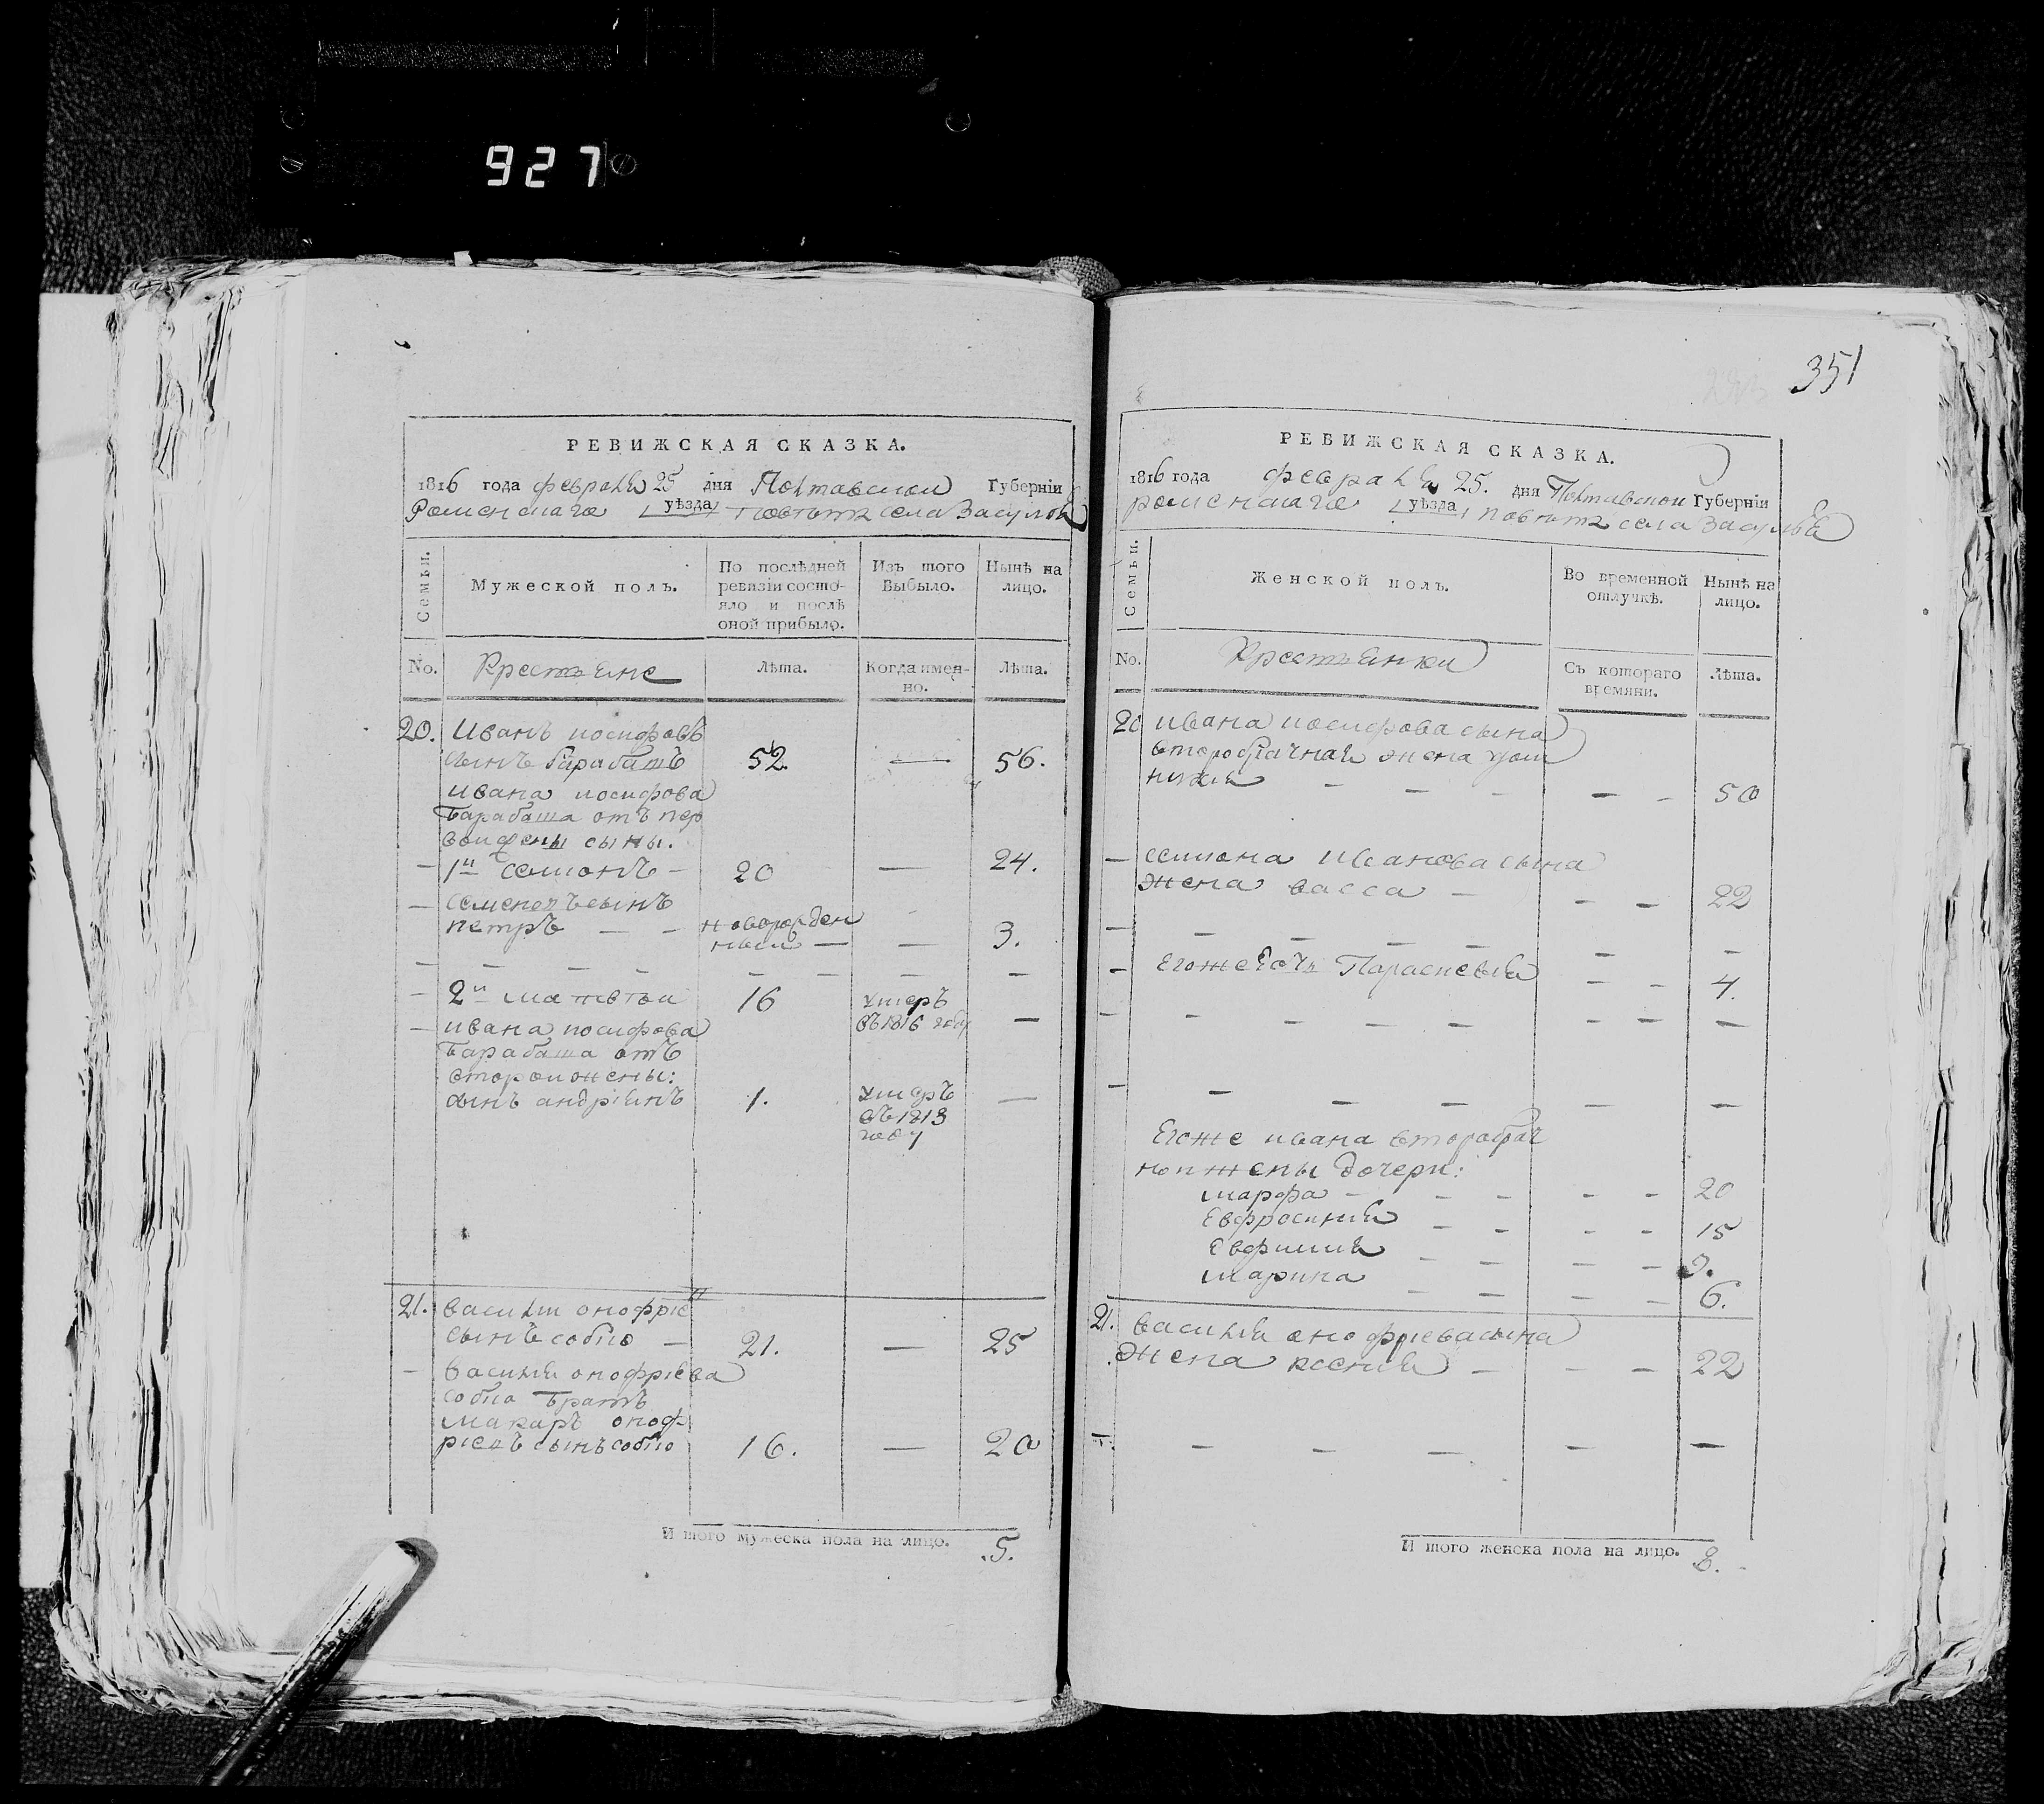 927
351
РЕВИЖСКАЯ СКАЗКА.
1816 года февраля 25 дня Полтавской Губерніи
Роменскаго уѣзда повѣта села Засулья
Семьи.
Мужеской полъ.
По послѣдней ревизіи состояло и послѣ оной прибыло.
Изъ того Выбыло.
Нынѣ на лицо.
No. Крестьяне Лѣта. Когда именно. Лѣта.
20. Иванъ иосифовъ
сынъ барабашъ 52. — 56.
ивана иосифова
барабаша отъ пер
вой жены сыны.
— 1й семионъ — 20 — 24.
— семеновъ сынъ
петръ — — новорожден
ный — — 3.
— — — — — — — —
— 2й матвѣй 16 умеръ
въ 1816 году —
— ивана иосифова
барабаша отъ
второй жены:
сынъ андріянъ 1. умеръ —
въ 1813
году
21. василий онофріевъ
сынъ собко — 21. — 25
— василия онофріева
собка братъ
макаръ оноф-
ріевъ сынъ собко 16. — 20
И того мужеска пола на лицо. 5.
РЕВИЖСКАЯ СКАЗКА.
1816 года февраля 25. дня Полтавской Губерніи
роменскаго уѣзда повѣта села Засулья
Семьи.
Женской полъ.
Во временной отлучкѣ.
Нынѣ на лицо.
No. Крестьянки Съ котораго времяни. Лѣта.
20 ивана иосифова сына
второбрачная жена
— — — — — 50
— семиона иванова сына
жена васса — — — 22
— — — — — — —
— Егоже дочь Параскевия — — 4.
— — — — — — — —
— — — — — —
Егоже ивана второбрач
ной жены дочери:
марфа — — — — — 20
Евфросиния — — — — 15
Евфимия — — — — 9.
марина — — — — 6.
21. василия онофріева сына
жена ксения — — — 22
— — — — — —
И того женска пола на лицо. 8.